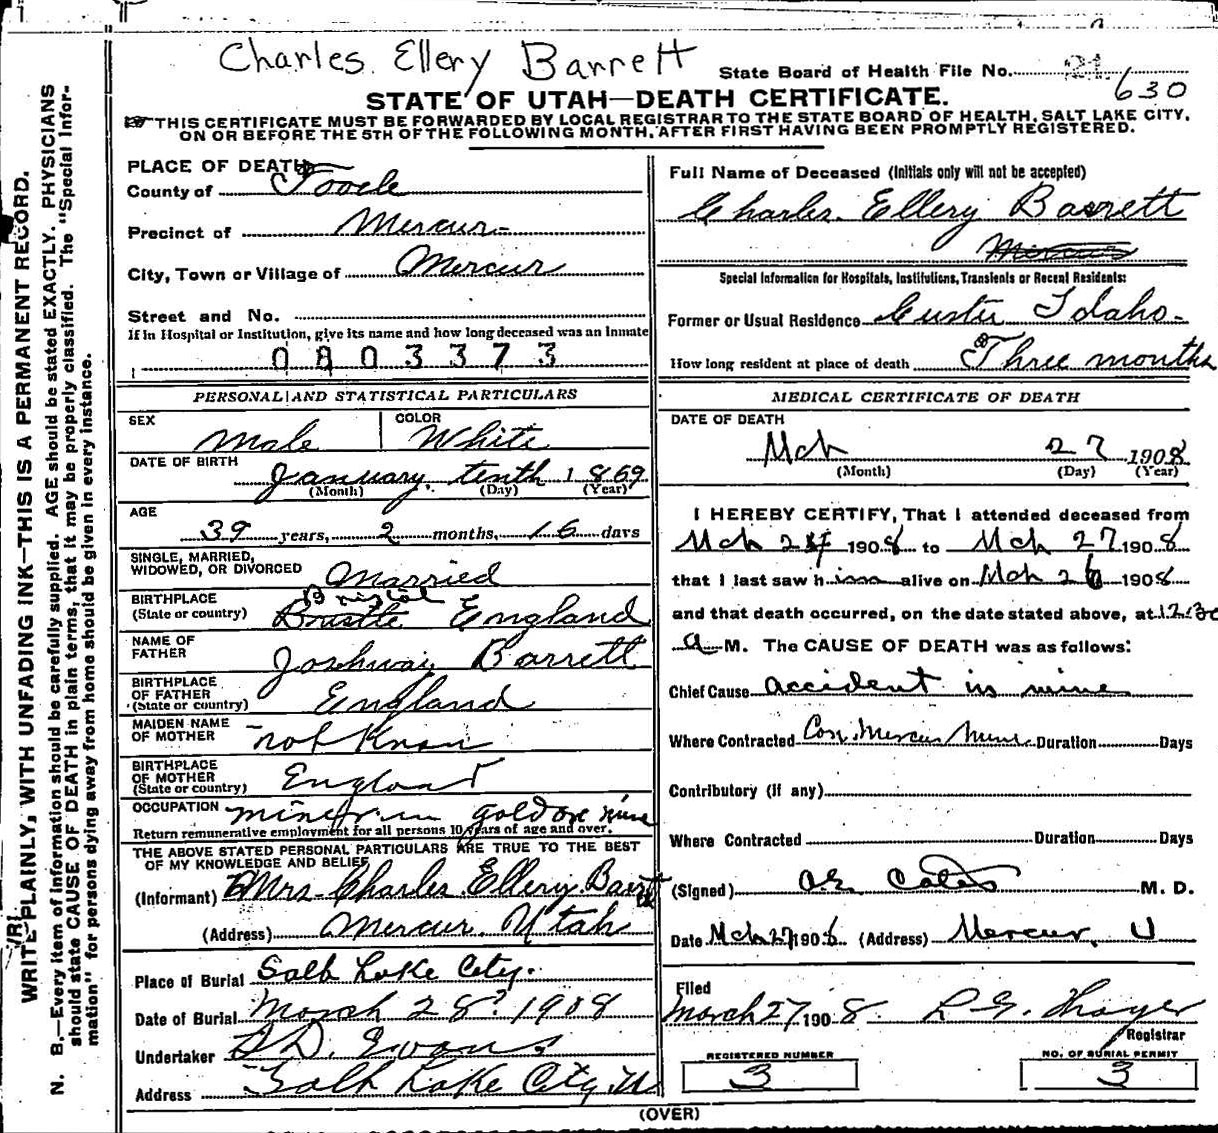 Charles Ellery Barrett
State Board of Health File No. 21
630
STATE OF UTAH—DEATH CERTIFICATE.
THIS CERTIFICATE MUST BE FORWARDED BY LOCAL REGISTRAR TO THE STATE BOARD OF HEALTH, SALT LAKE CITY,
ON OR BEFORE THE 5TH OF THE FOLLOWING MONTH, AFTER FIRST HAVING BEEN PROMPTLY REGISTERED.
WRITE PLAINLY, WITH UNFADING INK—THIS IS A PERMANENT RECORD.
N. B.—Every item of Information should be carefully supplied. AGE should be stated EXACTLY. PHYSICIANS
should state CAUSE OF DEATH in plain terms, that it may be properly classified. The "Special Infor-
mation" for persons dying away from home should be given in every instance.
PLACE OF DEATH
County of Tooele
Precinct of Mercur
City, Town or Village of Mercur
Street and No.
If in Hospital or Institution, give its name and how long deceased was an Inmate
0803373
PERSONAL AND STATISTICAL PARTICULARS
SEX Male COLOR White
DATE OF BIRTH January tenth 1869
(Month) (Day) (Year)
AGE
39 years, 2 months, 16 days
SINGLE, MARRIED,
WIDOWED, OR DIVORCED Married
BIRTHPLACE Bristol
(State or country) Brustle England
NAME OF
FATHER Joshway Barrett
BIRTHPLACE
OF FATHER
(State or country) England
MAIDEN NAME
OF MOTHER not Known
BIRTHPLACE
OF MOTHER
(State or country) England
OCCUPATION miner in gold ore mine
Return remunerative employment for all persons 10 years of age and over.
THE ABOVE STATED PERSONAL PARTICULARS ARE TRUE TO THE BEST
OF MY KNOWLEDGE AND BELIEF
(Informant) Mrs Charles Ellery Barrett
(Address) Mercur Utah
Place of Burial Salt Lake City.
Date of Burial March 28 1908
Undertaker D. Evans
Address Salt Lake City U
Full Name of Deceased (Initials only will not be accepted)
Charles Ellery Barrett
Mercur
Special Information for Hospitals, Institutions, Transients or Recent Residents:
Former or Usual Residence Custer Idaho
How long resident at place of death Three months
MEDICAL CERTIFICATE OF DEATH
DATE OF DEATH
Mch 27 1908
(Month) (Day) (Year)
I HEREBY CERTIFY, That I attended deceased from
Mch 1908 to Mch 27 1908
that I last saw him alive on Mch 26 1908
and that death occurred, on the date stated above, at 12:30
a M. The CAUSE OF DEATH was as follows:
Chief Cause accident in mine
Where Contracted Con. Mercur Mine Duration Days
Contributory (If any)
Where Contracted Duration Days
(Signed) M. D.
Date Mch 27 1908 (Address) Mercur, U
Filed
March 27, 1908 L G. Thayer
Registrar
REGISTERED NUMBER
3
NO. OF BURIAL PERMIT
3
(OVER)